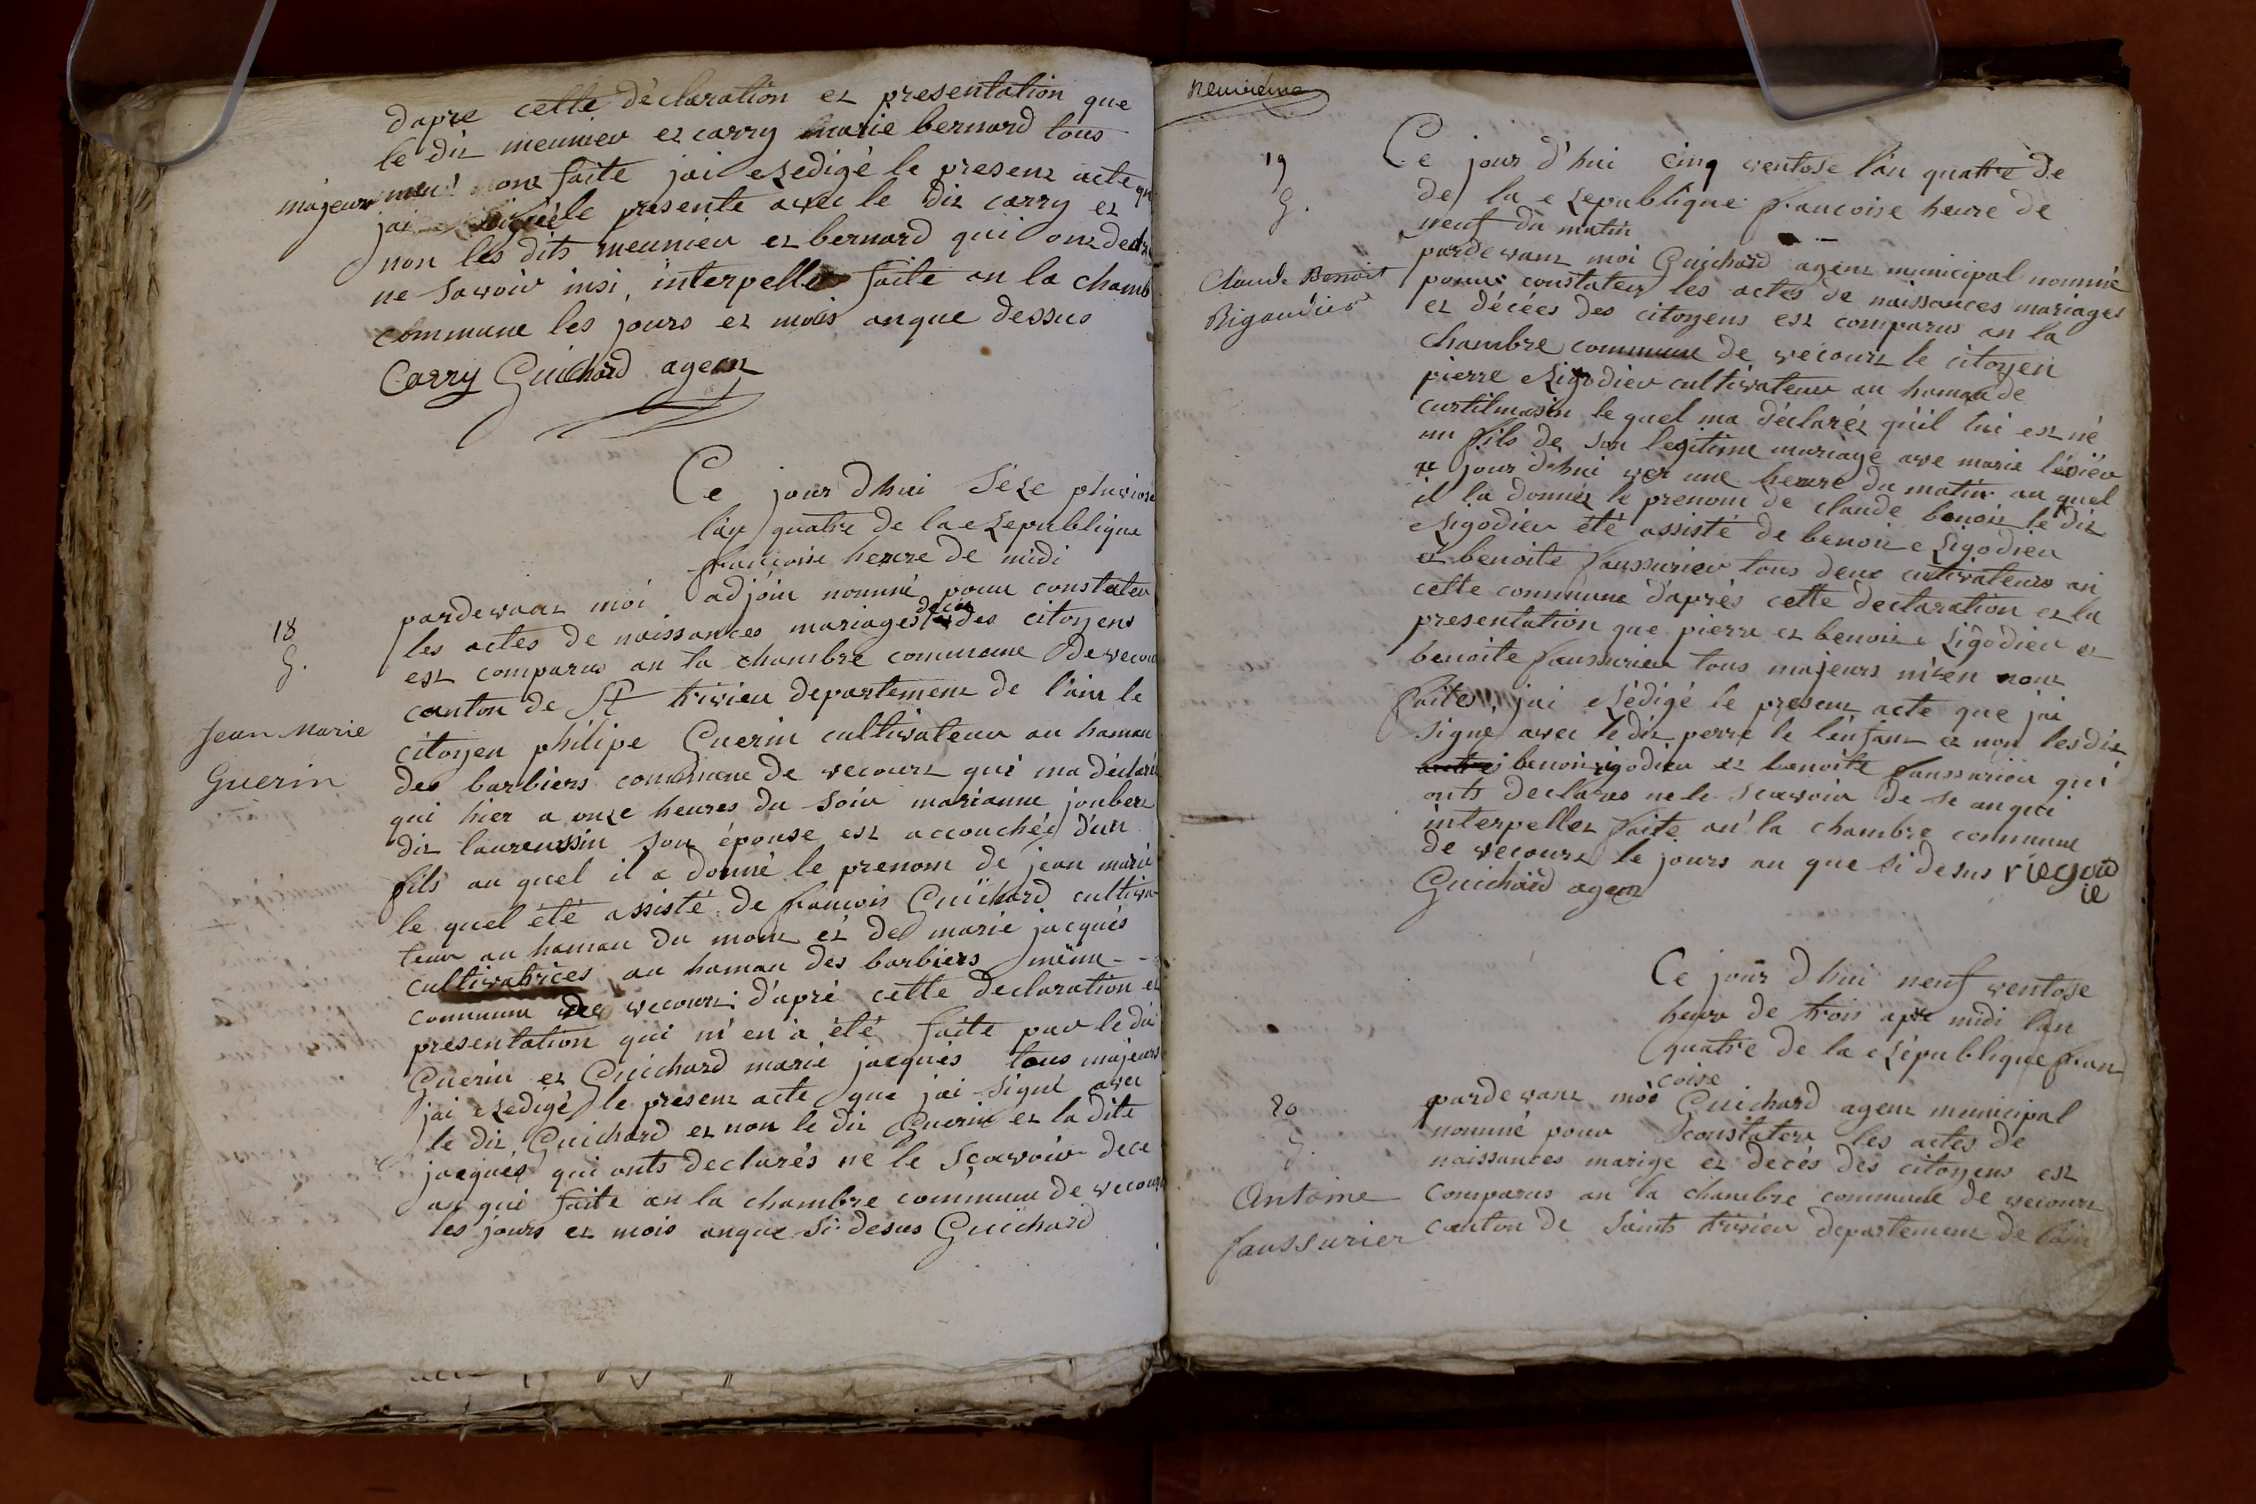 dapre cette déclaration et presentation que
le dit meunier et carry marie bernard tous
majeurs
mont faite jai redigé le present acte que
jai signé le presente avec le dit carry et
non les dits meunier et bernard qui ont declaré
ne savoir insi, interpelle faite an la chamb
commune les jours et mois anque dessus
Carry Guichard agent
Ce jour dhui séze pluviose
l'an quatre de la republique
francoise heure de midi
18
G.
Jean Marie
Guerin
pardevant moi adjoin nommé pour constater
les actes de naissances mariages décés des citoyens
est comparus an la chambre commune de vecour
canton de St trivieu departement de l'ain le
citoyen philipe Guerin cultivateur au hamau
des barbiers commune de vecourt qui ma déclaré
qui hier a onze heures du soir marianne joubert
dit laurenssin son épouse est accouchée d'un
fils au quel il a donné le prenom de jean marie
le quel été assisté de francois Guichard cultiva
teur au hamau du mont et de marie jacques
cultivatrices au hamau des barbiers même
commune de vecourt d'apré cette declaration et
presentation qui m'en a été faite par le dit
Guerin et Guichard marie jacques tous majeurs
jai redigé le present acte que jai signé avec
le dit Guichard et non le dit Guerin et la dite
jacques qui onts declarés ne le sçavoir de ce
an qui faite an la chambre commune de vecourt
les jours et mois anque si desus Guichard
neuvieme
19
G.
Claude Benoit
Rigaudier
Ce jour d'hui cinq ventose l'an quatre de
de la republique francoise heure de
neuf du matin
pardevant moi Guichard agent municipal nommé
pour constater les actes de naissances mariages
et décées des citoyens est comparus an la
chambre commune de vecourt le citoyen
pierre rigodier cultivateur au hamau de
curtilmasin le quel ma déclarér qu'il lui est né
un fils de son legitime mariage ave marie
ce jour d'hui ver une heure du matin au quel
il la donnér le prenom de claude benoit le dit
rigodier été assisté de benoit rigodier
et benoite faussurier tous deux cultivateurs an
cette commune d'aprés cette declaration et la
presentation que pierre et benoit rigodier et
benoite faussurier tous majeurs m'en nont
faites, jai rédigé le present acte que jai
signé avec le dit perre le l'enfant et non les dit
benoit rigodier et benoite faussurier qui
onts declares ne le scavoir de se an qui
interpeller faite an la chambre commune
de vecourt le jours an que si desus riegod
ie
Guichard agent
Ce jour d'hui neuf ventose
heur de trois apre midi l'an
quatre de la république fran
coise
20
G.
Antoine
faussurier
pardevant moi Guichard agent municipal
nommé pour constater les actes de
naissances marige et decés des citoyens est
comparus an la chambre commune de vecourt
canton de saint trivier departement de l'ain